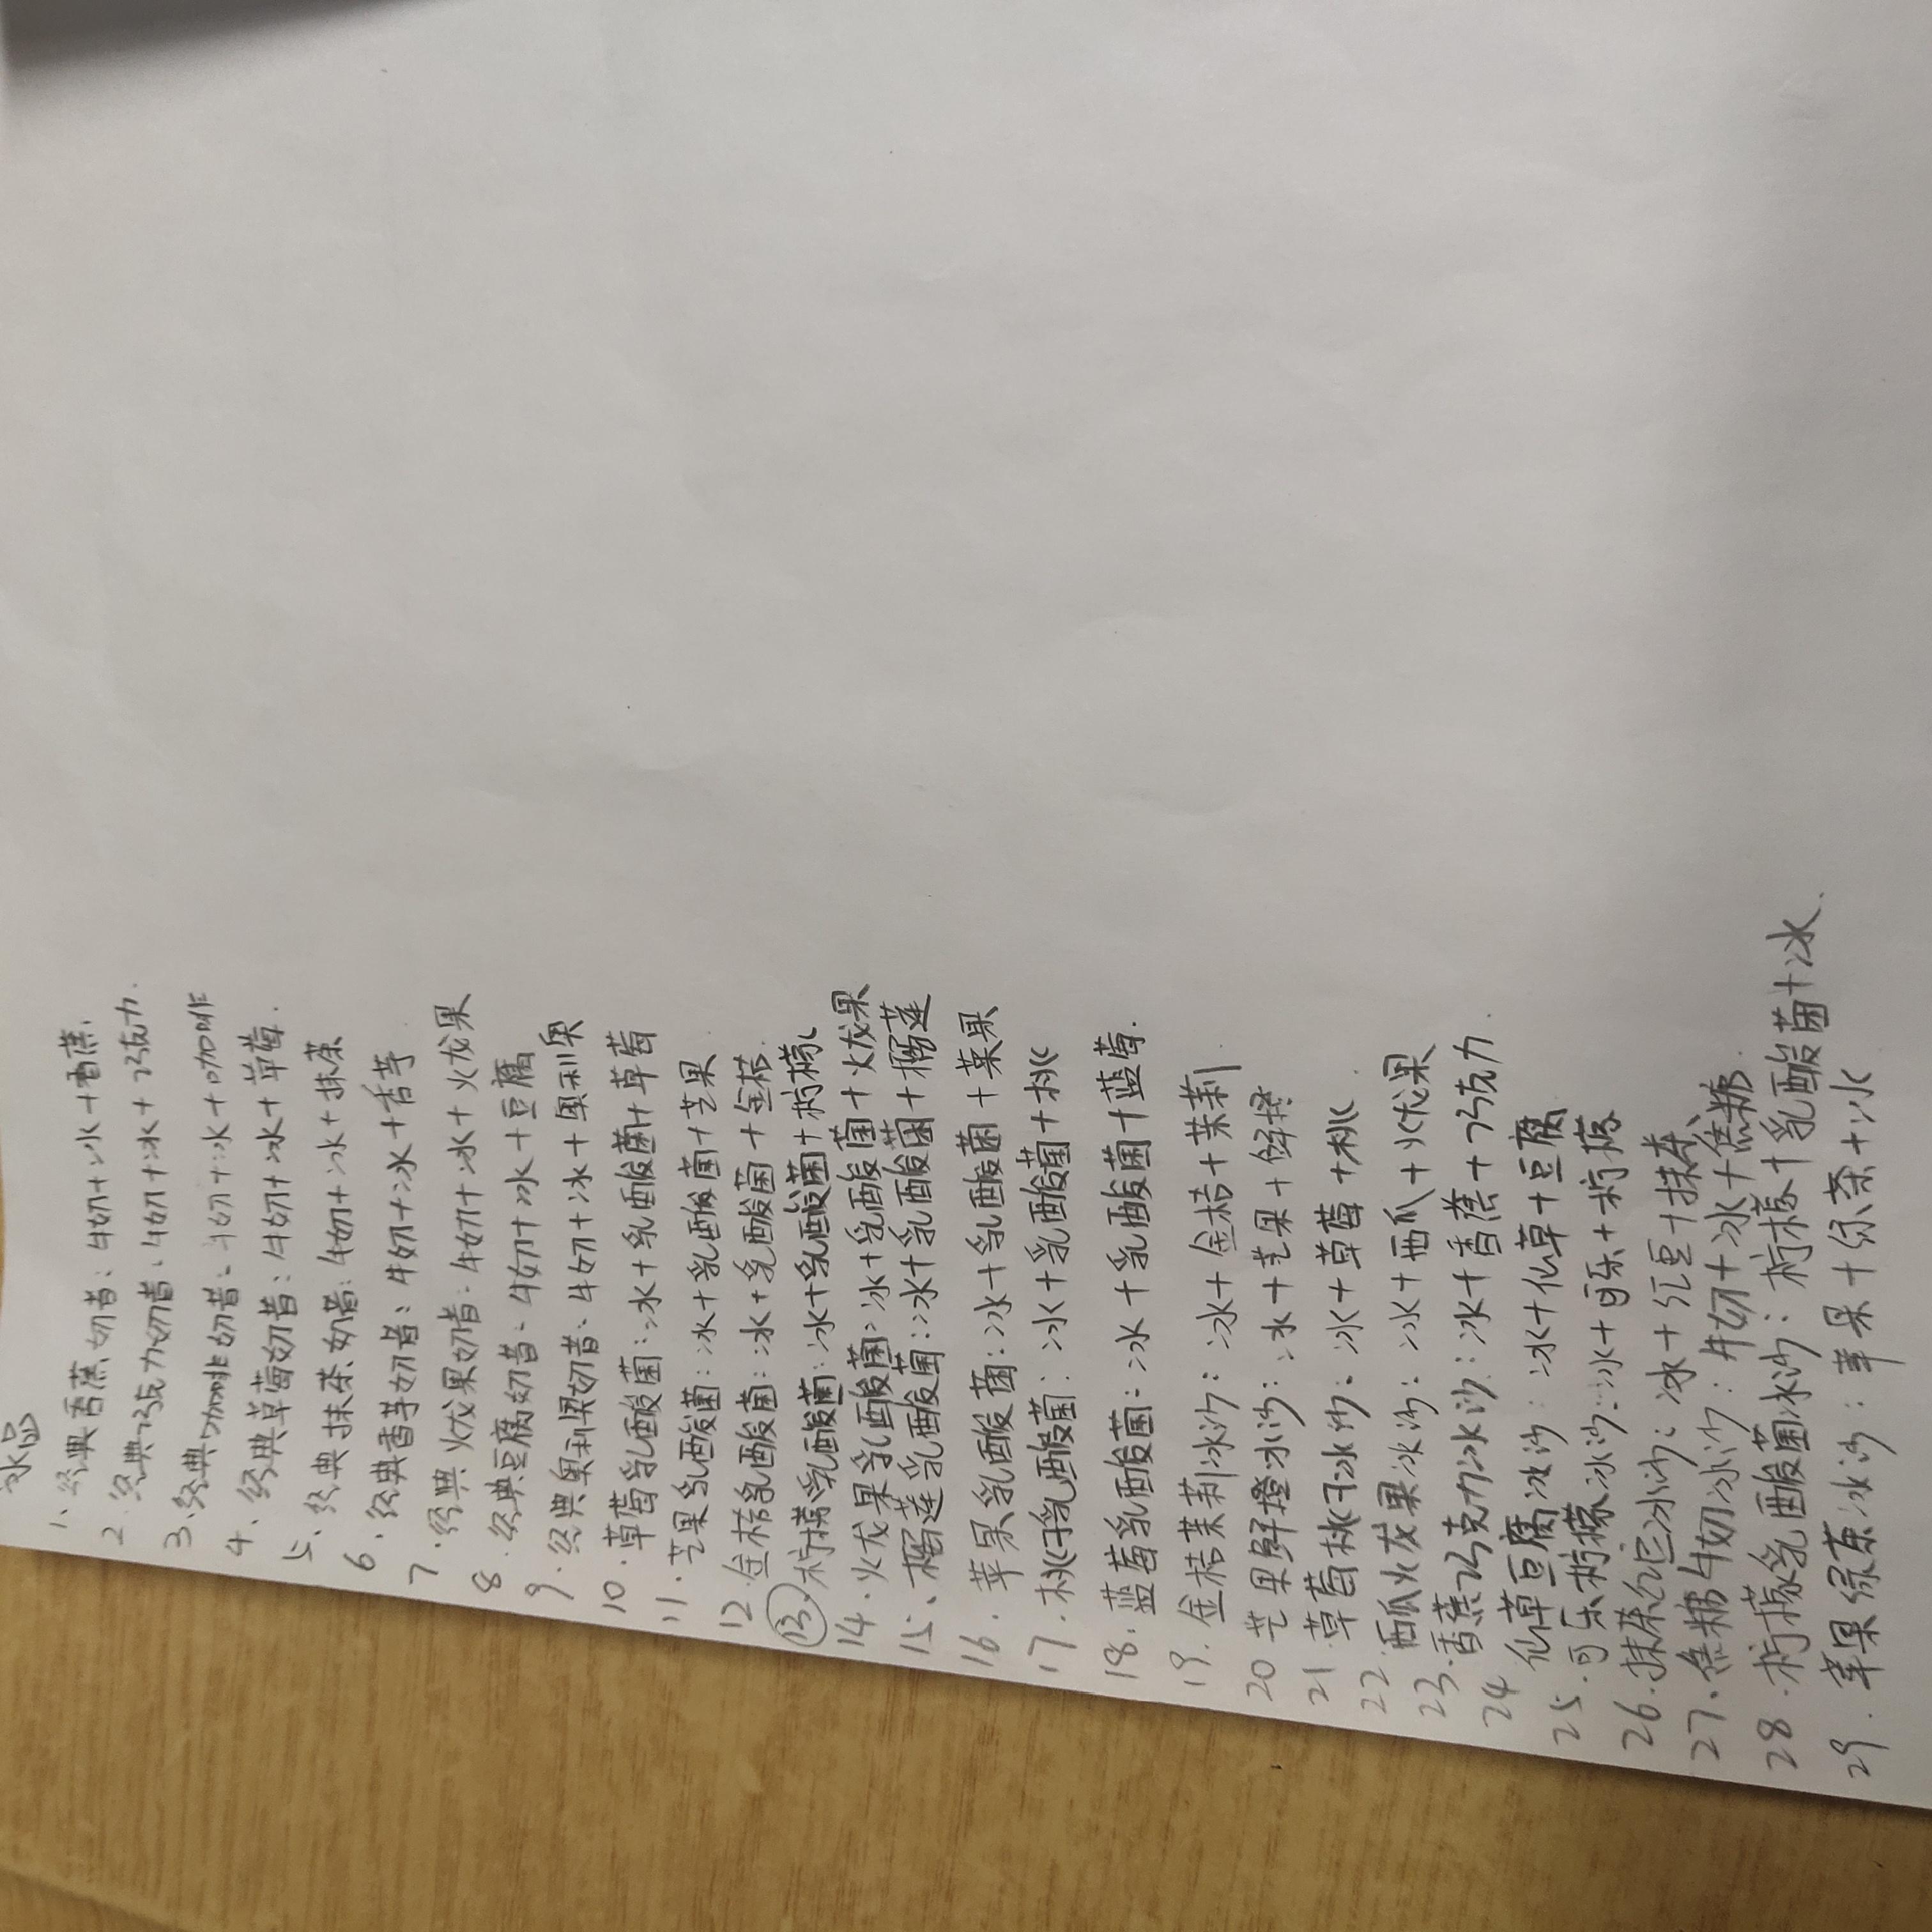 冰品
1、经典香蕉奶昔：牛奶+冰+香蕉.
2.经典巧克力奶昔：牛奶+冰+巧克力.
3.经典咖啡奶昔：牛奶+冰+咖啡
4、经典草莓奶昔：牛奶+冰+草莓.
5、经典抹茶奶昔：牛奶+冰+抹茶
6.经典香芋奶昔：牛奶+冰+香芋
7.经典火龙果奶昔：牛奶+冰+火龙果
8.经典豆腐奶昔：牛奶+冰+豆腐
9.经典奥利奥奶昔：牛奶+冰+奥利奥
10.草莓乳酸菌：冰+乳酸菌+草莓
11.芒果乳酸菌：冰+乳酸菌+芒果
12.金桔乳酸菌：冰+乳酸菌+金桔.
⑬.柠檬乳酸菌：冰+乳酸菌+柠檬
14.火龙果乳酸菌：冰+乳酸菌+火龙果
15、榴莲乳酸菌：冰+乳酸菌+榴莲
16.苹果乳酸菌：冰+乳酸菌+苹果
17.桃子乳酸菌：冰+乳酸菌+桃
18.蓝莓乳酸菌：冰+乳酸菌+蓝莓.
19.金桔茉莉冰沙：冰+金桔+茉莉
20芒果鲜橙冰沙：冰+芒果+鲜橙
21.草莓桃子冰沙：冰+草莓+桃
22.西瓜火龙果冰沙：冰+西瓜+火龙果
23.香蕉巧克力冰沙：冰+香蕉+巧克力.
24仙草豆腐冰沙：冰+仙草+豆腐
25.可乐柠檬冰沙：冰+可乐+柠檬
26.抹茶红豆冰沙：冰+红豆+抹茶
27、焦糖牛奶冰沙：牛奶+冰+焦糖.
28.柠檬乳酸菌冰沙：柠檬+乳酸菌+冰.
29.苹果绿茶冰沙：苹果+绿茶+冰